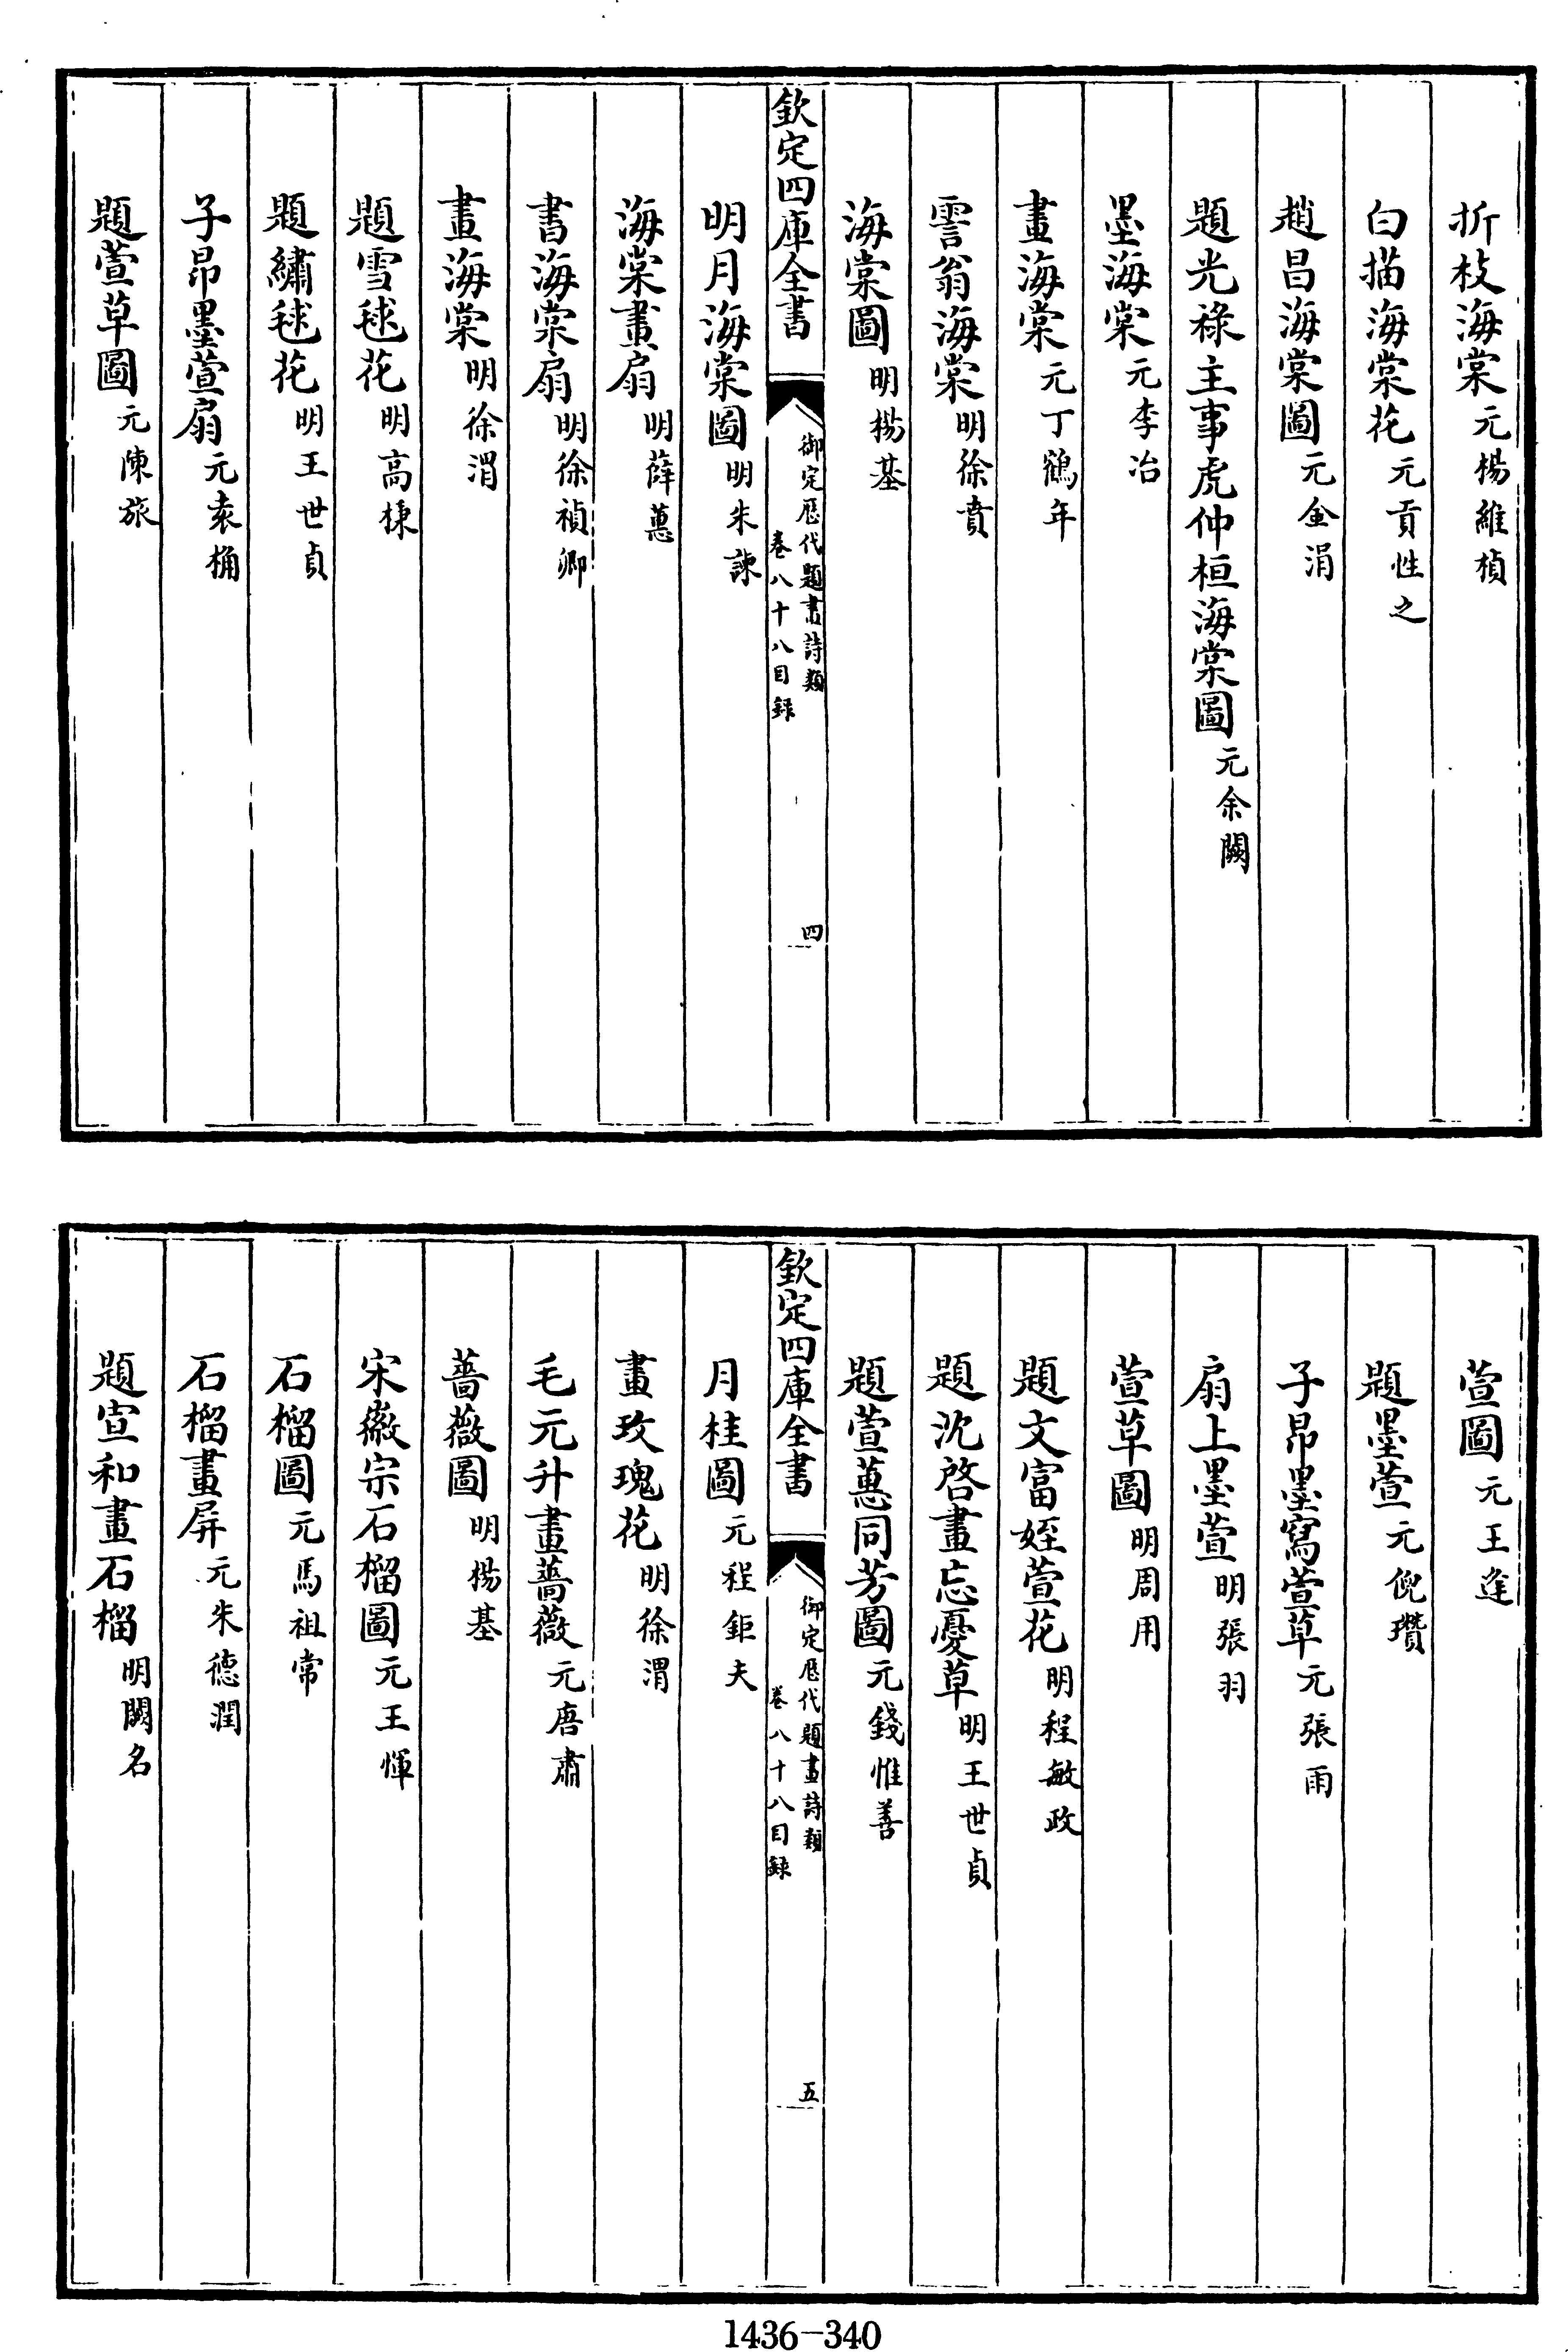 折枝海棠元楊維楨
白描海棠花元貢性之
趙昌海棠圖元金涓
題光祿主事虎仲桓海棠圖元余闕
墨海棠元李冶
畫海棠元丁鶴年
雪翁海棠明徐賁
海棠圖明楊基
欽定四庫全書
御定歷代題畫詩類
卷八十八目録
四
明月海棠圖明朱諫
海棠畫扇明薛蕙
書海棠扇明徐禎卿
畫海棠明徐渭
題雪毬花明高棅
題繡毬花明王世貞
子昂墨萱扇元袁桷
題萱草圖元陳旅
萱圖元王逢
題墨萱元倪瓚
子昂墨寫萱草元張雨
扇上墨萱明張羽
萱草圖明周用
題文富姪萱花明程敏政
題沈啓畫忘憂草明王世貞
題萱蕙同芳圖元錢惟善
欽定四庫全書
御定歷代題畫詩類
卷八十八目録
五
月桂圖元程鉅夫
畫玫瑰花明徐渭
毛元升畫薔薇元唐肅
薔薇圖明楊基
宋徽宗石榴圖元王惲
石榴圖元馬祖常
石榴畫屏元朱德潤
題宣和畫石榴明闕名
1436-340